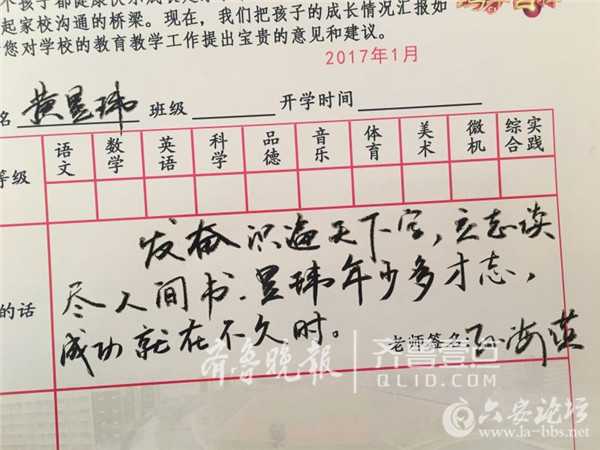 个孩子都健康快乐成长
起家校沟通的桥梁。现在，我们把孩子的成长情况汇报如
您对学校的教育教学工作提出宝贵的意见和建议。
2017年1月
名 黄昱玮 班级 开学时间
等级 语文 数学 英语 科学 品德 音乐 体育 美术 微机 综合实践
发奋识遍天下字，立志读
的话 尽人间书.昱玮年少多才志，
成功就在不久时。
老师签名: 孙海英
齐鲁晚报 齐鲁壹点
QLID.COM
六安论坛
www.la-bbs.net